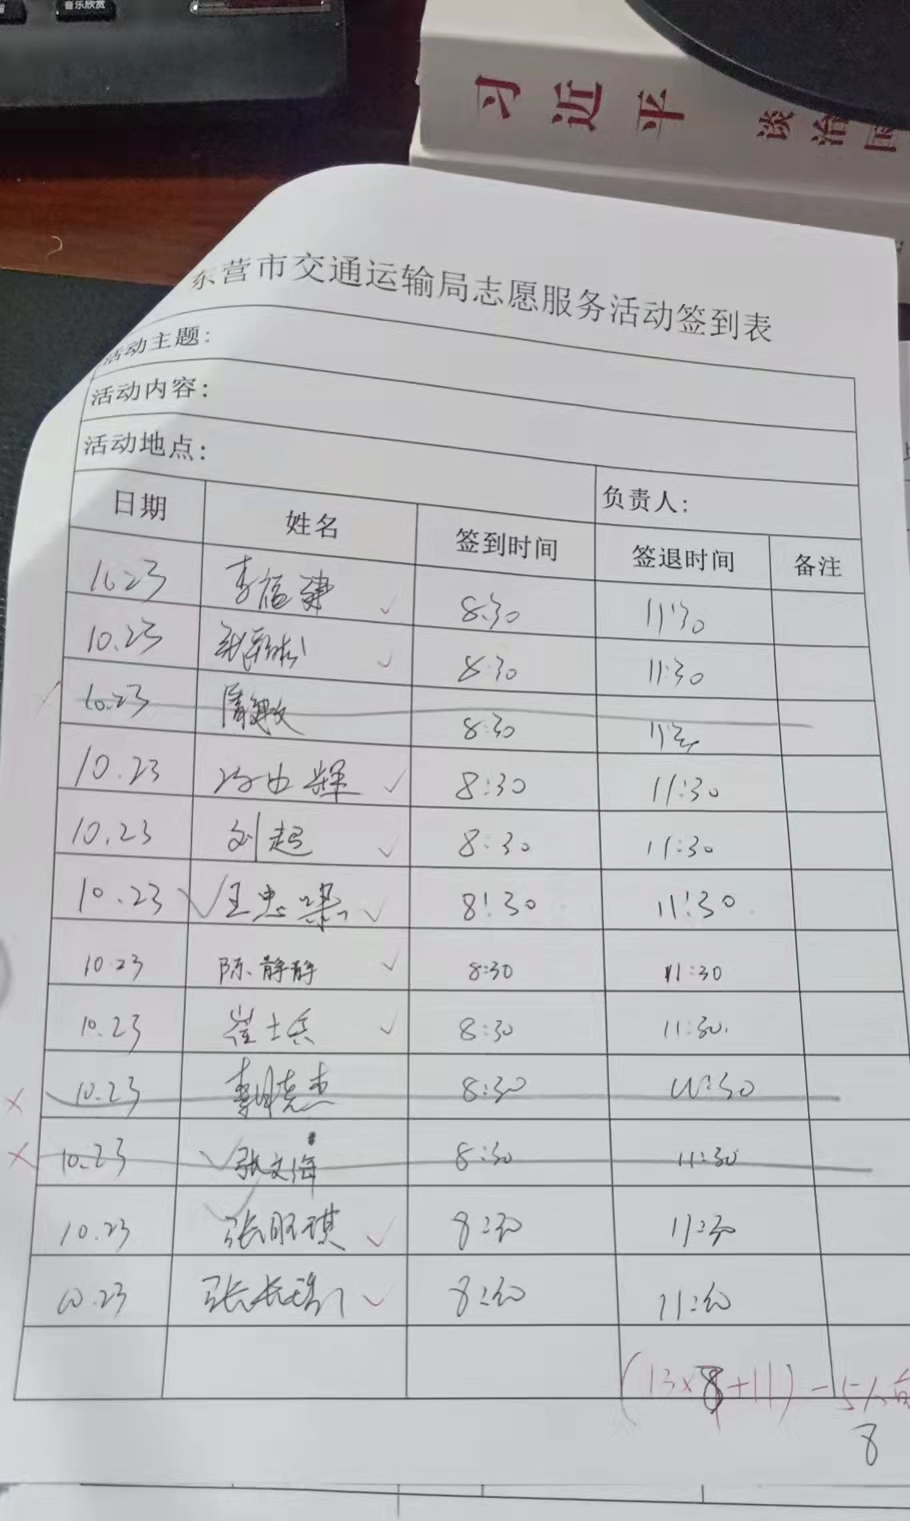 音乐欣赏
习近平
谈治国
东营市交通运输局志愿服务活动签到表
活动主题：
活动内容：
活动地点：
负责人：
日期 姓名 签到时间 签退时间 备注
10.23 李福建 ✓ 8:30 11:30
10.23 ✓ 8:30 11:30
10.23 8:30 11:30
10.23 ✓ 8:30 11:30
10.23 刘超 ✓ 8:30 11:30
10.23 ✓ 王忠 ✓ 8:30 11:30
10.23 陈静静 ✓ 8:30 11:30
10.23 崔士兵 ✓ 8:30 11:30.
× 10.23 8:30 10:30
× 10.23 ✓ 张文海 8:30 11:30
10.23 张 琪 ✓ 8:30 11:30
10.23 张长瑞 ✓ 8:30 11:30
(13×8+11) - 5人
8